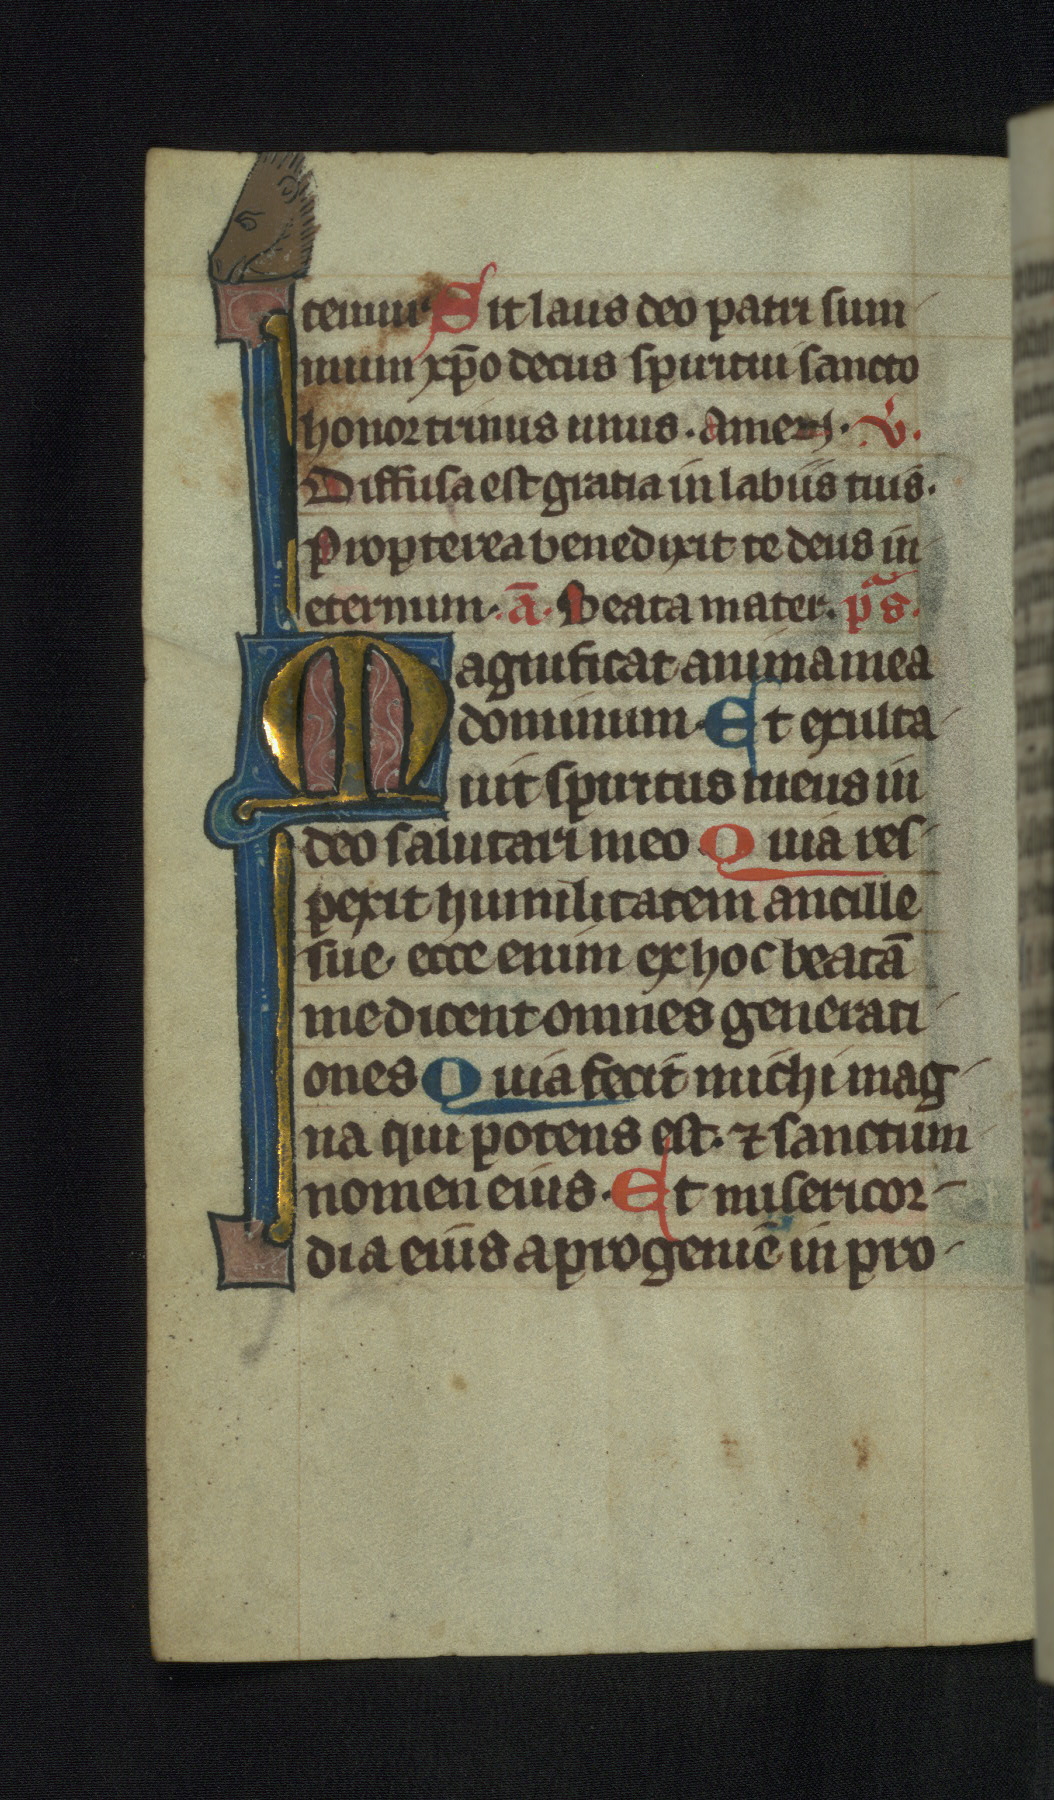 temur Sit laus deo patri sum
mum xp̄o decus spiritui sancto
honor trinus unus. Amen. V̉.
Diffusa est gratia in labiis tuis.
Propterea benedixit te deus in
eternum. ā. Beata mater. ps.
Magnificat anima mea
dominum. Et exulta
uit spiritus meus in
deo salutari meo Quia res
pexit humilitatem ancille
sue. ecce enim ex hoc beatā
me dicent omnes generati
ones Quia fecit michi mag
na qui potens est. ⁊ sanctum
nomen eius. Et misericor
dia eius a progeniē in pro